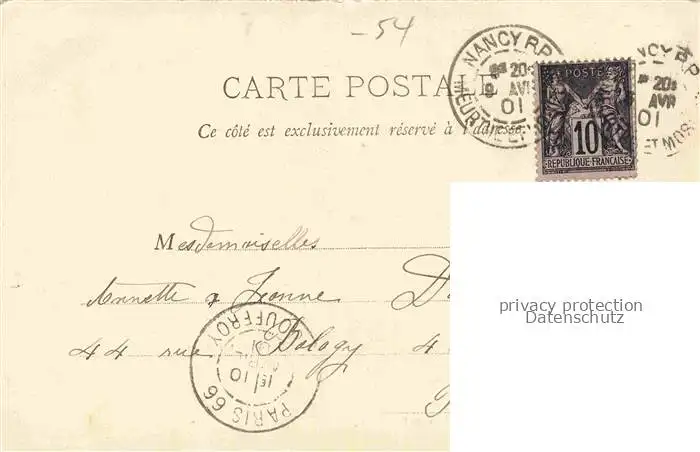 -54
CARTE POSTALE
Ce côté est exclusivement réservé à l'adresse
NANCY R.P.
20
AVR
01
MEURTHE
NANCY R.P.
20
AVR
01
ET MOS
POSTE
10
REPUBLIQUE FRANÇAISE
Mesdemoiselles
Annette & Jeanne D
44 rue Balagy 4
PARIS 66
JOUFFROY
10
privacy protection
Datenschutz